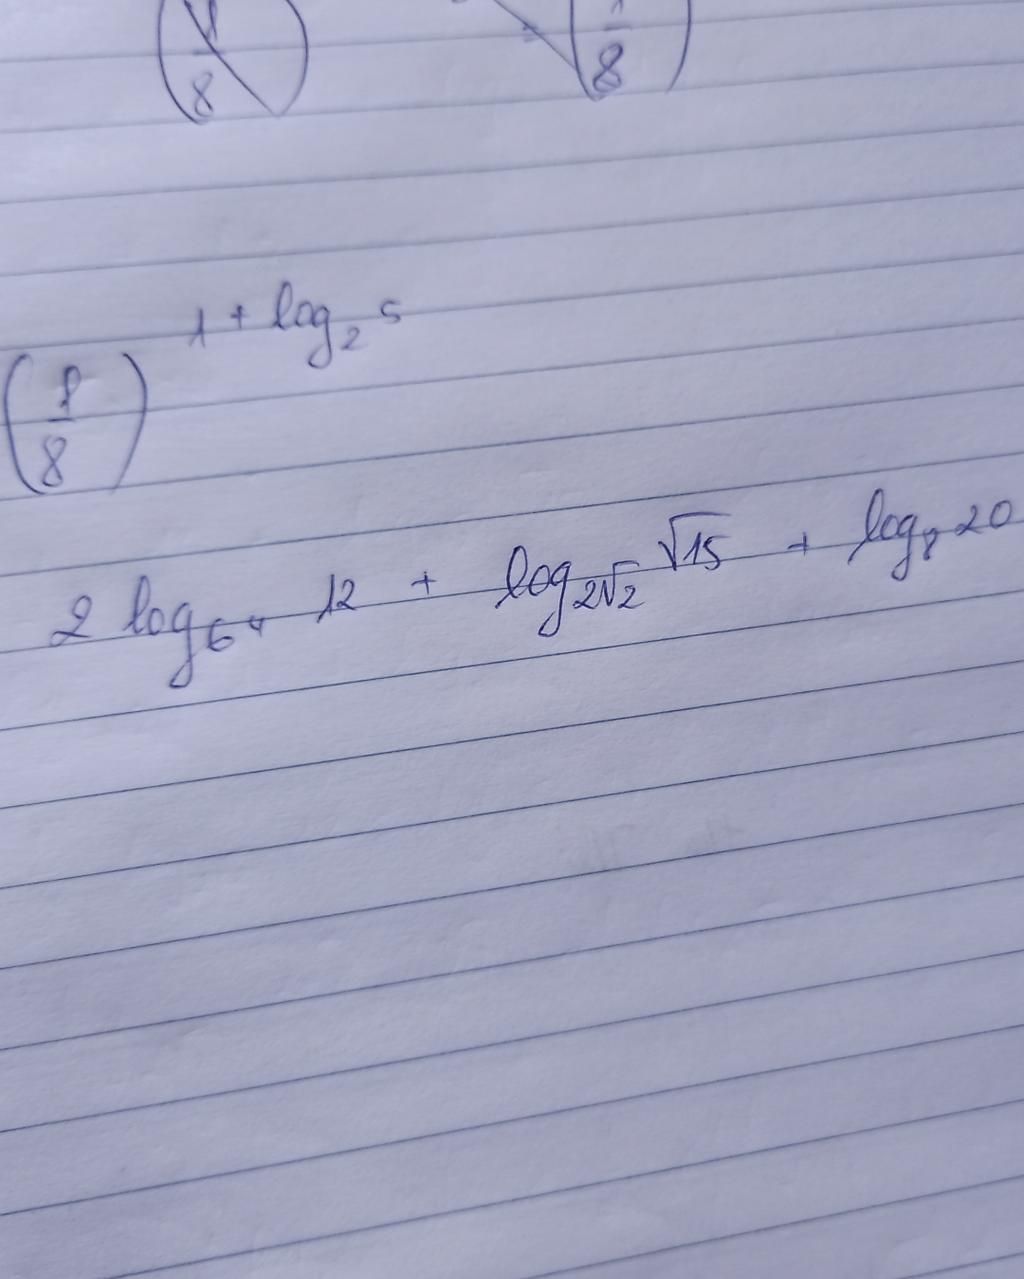 (1/8) = (1/8)
(1/8)^{1 + log_2 5}
2 log_64 12 + log_{2√2} √15 + log_8 20